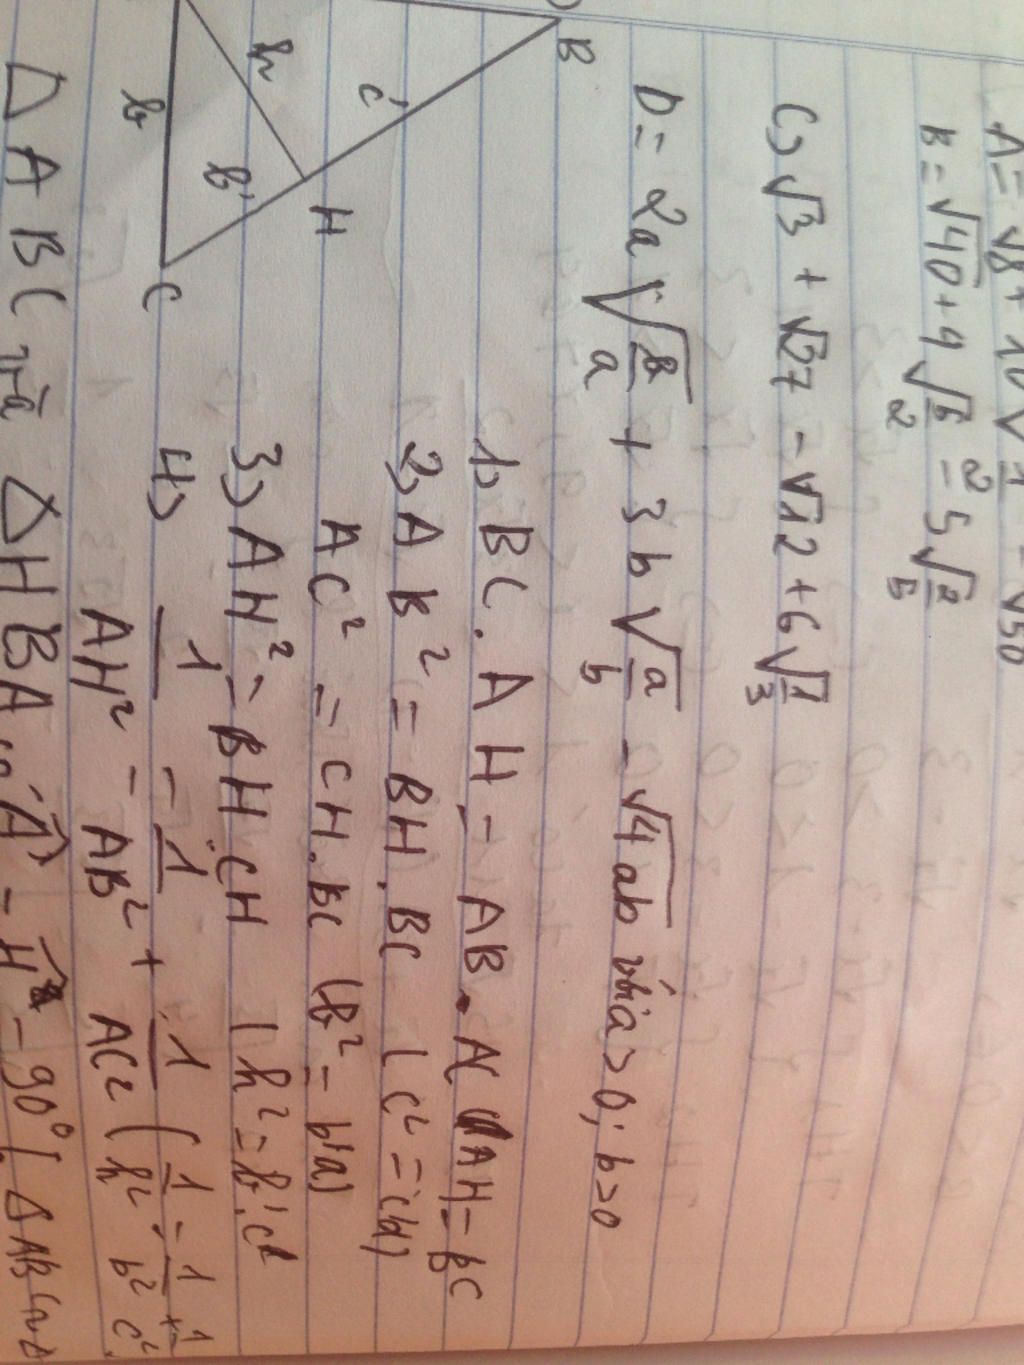 A = √8 + 10√1/2 - √50
B = √40 + 4√5/2 - 5√2/5
C) √3 + √27 - √12 + 6√1/3
D = 2a√b/a + 3b√a/b - √4ab với a > 0; b > 0
B
c'
H
h
b'
b
C
1) BC. AH = AB. AC (AH = bc
2) AB² = BH. BC (c² = c'a)
AC² = CH. BC (b² = b'a)
3) AH² = BH.CH (h² = b'.c'
4) 1/AH² = 1/AB² + 1/AC² (1/h² = 1/b² + 1/c²
Δ ABC và ΔHBA có Â = Ĥ = 90° (Δ ABC